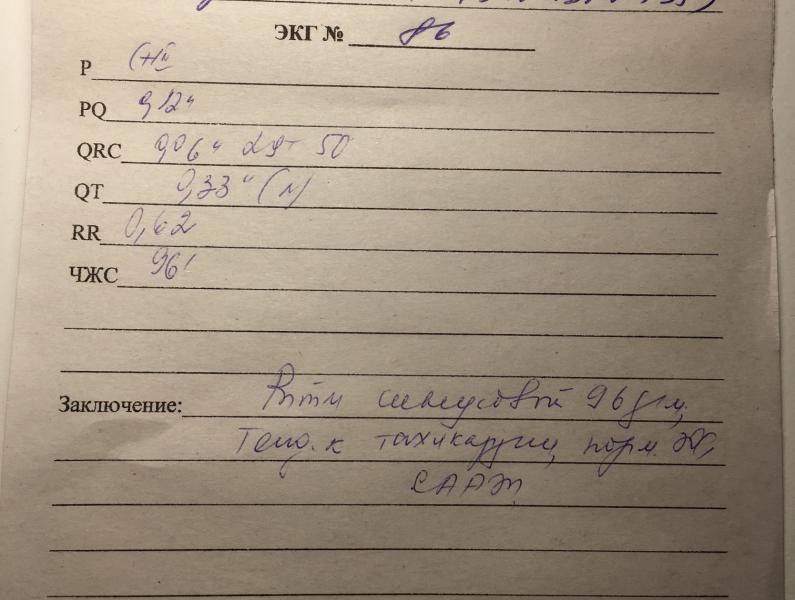 ЭКГ № 86
P (+) II
PQ 0,12"
QRC 0,06" 50
QT 0,33" (N)
RR 0,62
ЧЖС 96'
Заключение: Ритм синусовый 96
Тенд. к тахикардии, норм.